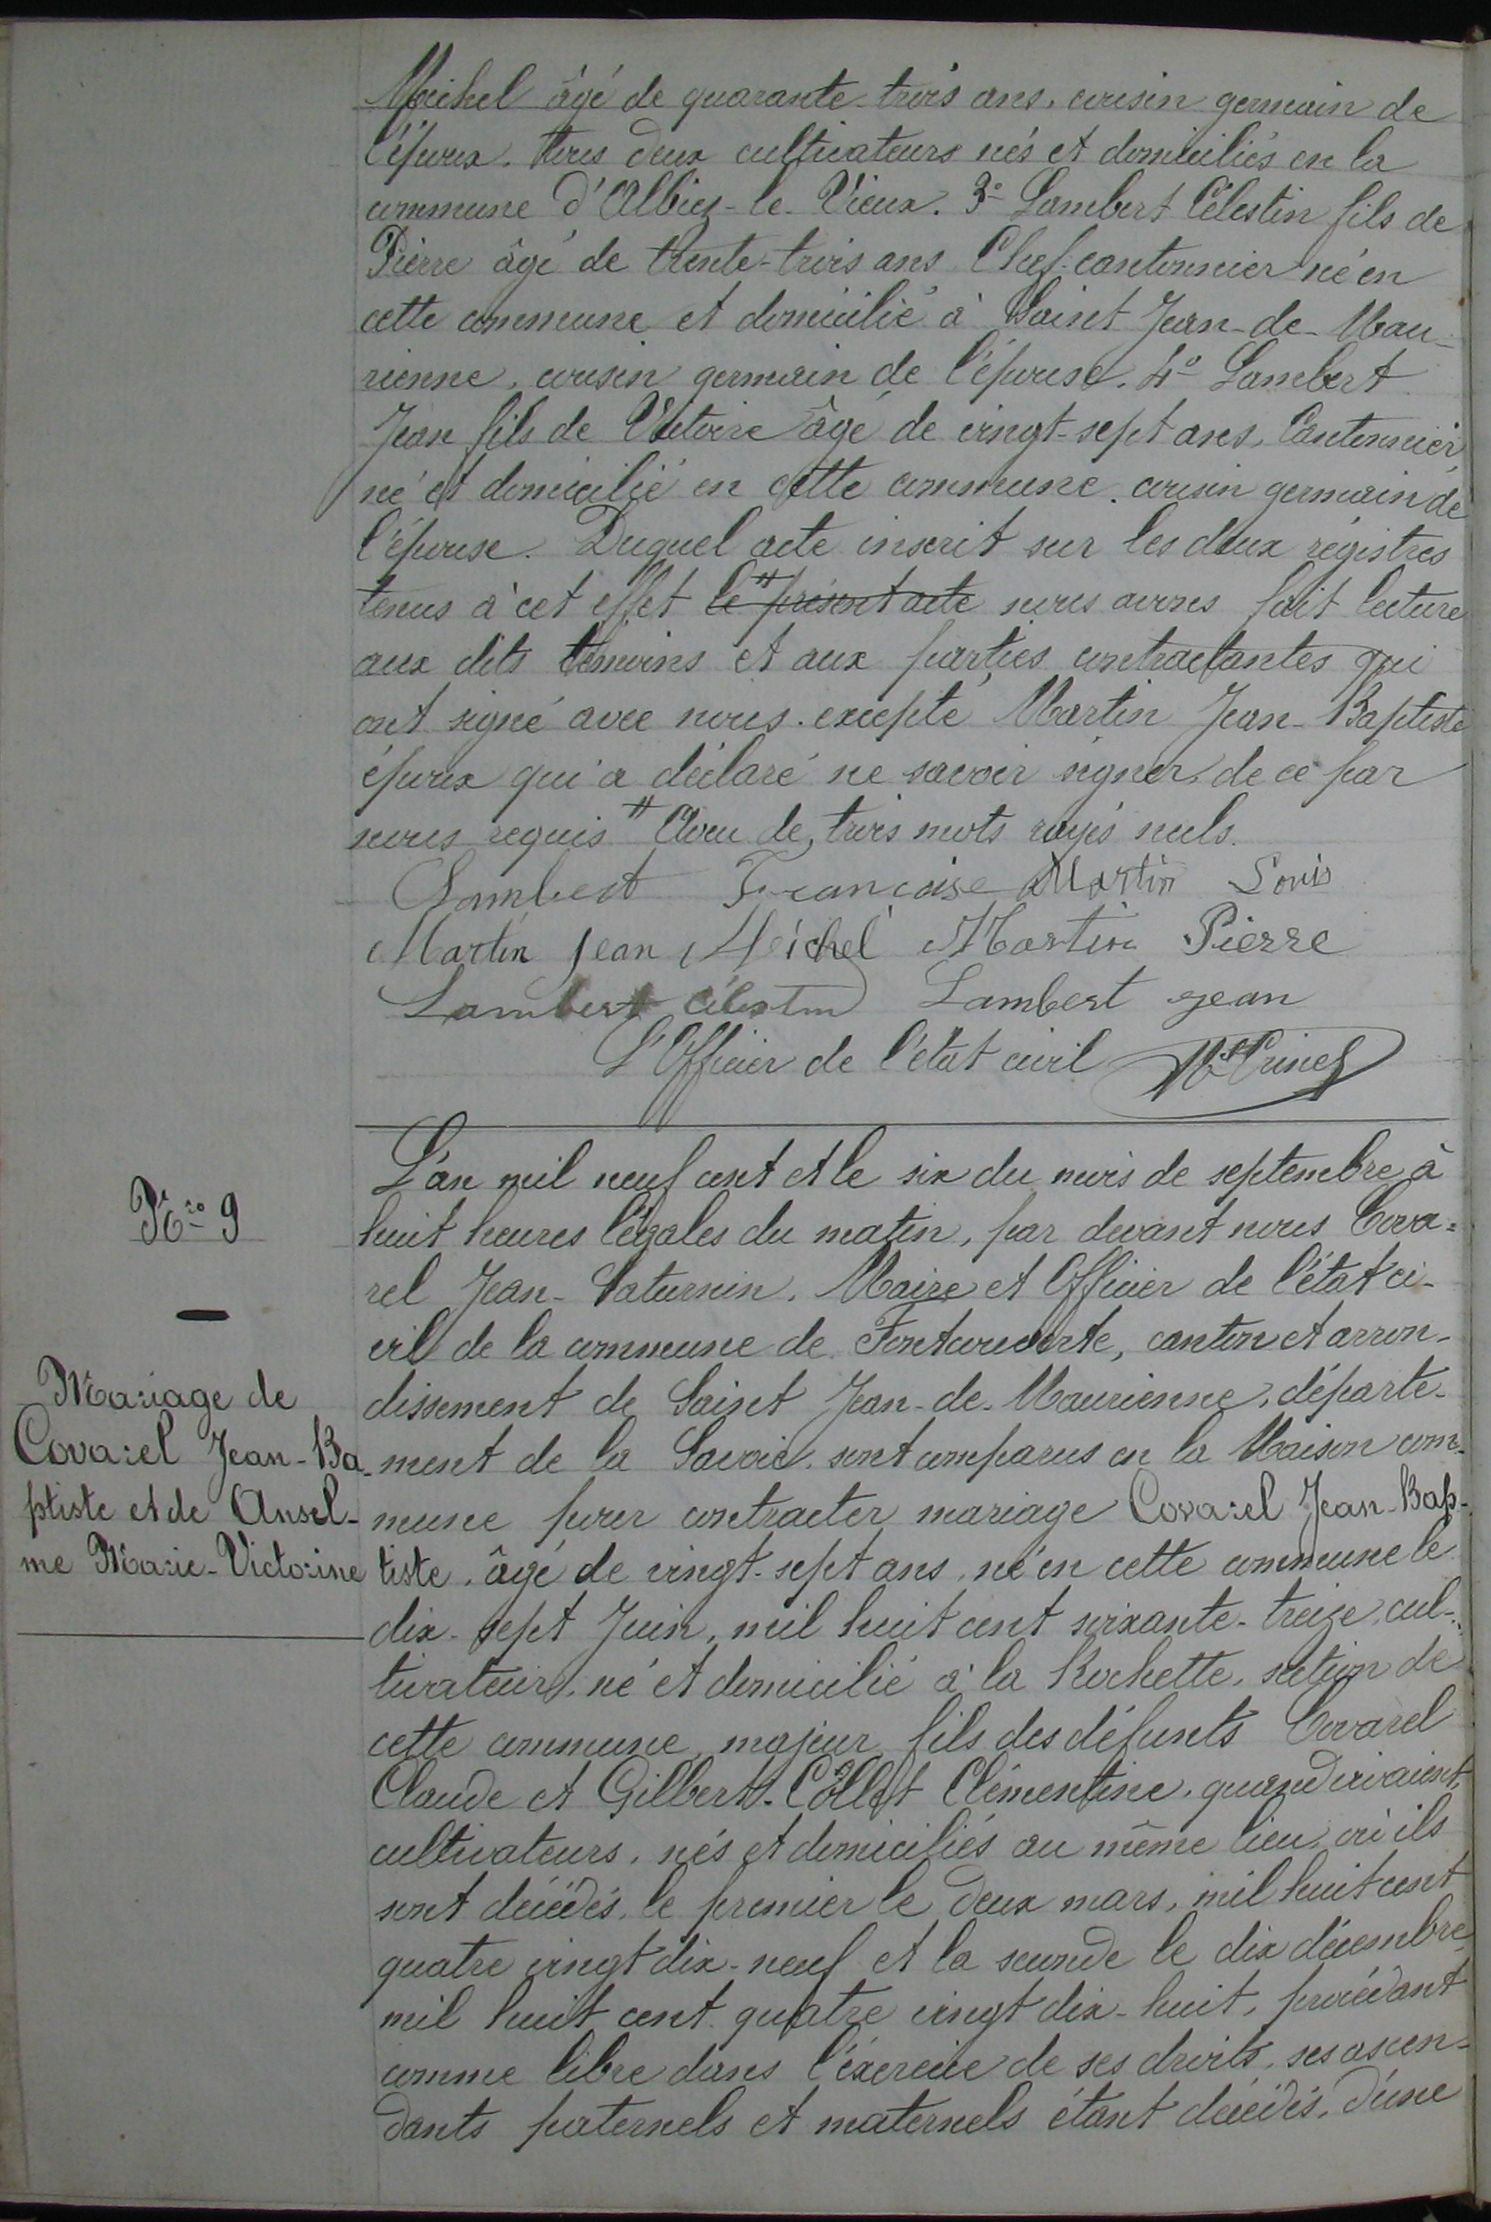 Michel âgé de quarante-trois ans, cousin germain de
l'époux. tous deux cultivateurs nés et domiciliés en la
commune d'Albiez-le-Vieux. 3° Lambert Célestin fils de
Pierre âgé de trente-trois ans Chef-cantonnier né en
cette commune et domicilié à Saint Jean-de-Mau-
rienne, cousin germain de l'épouse. 4° Lambert
Jean fils de Victoire âgé de vingt-sept ans, Cantonnier
né et domicilié en cette commune, cousin germain de
l'épouse. Duquel acte inscrit sur les deux régistres
tenus à cet effet le présent acte nous avons fait lecture
aux dits témoins et aux parties contractantes qui
ont signé avec nous, excepté Martin Jean-Baptiste
époux qui a déclaré ne savoir signer, de ce par
nous requis # Aveu de, trois mots rayés nuls.
Lambert Françoise Martin Louis
Martin Jean Michel Martin Pierre
Lambert Célestin Lambert Jean
L'Officier de l'état civil
N° 9
Mariage de
Covarel Jean-Ba-
ptiste et de Ansel-
me Marie-Victorine
L'an mil neuf cent et le six du mois de septembre à
huit heures légales du matin, par devant nous Cova-
rel Jean-Saturnin, Maire et Officier de l'état ci-
vil de la commune de Fontcouverte, canton et arron-
dissement de Saint Jean-de-Maurienne, départe-
ment de la Savoie, sont comparus en la Maison com-
mune pour contracter mariage Covarel Jean-Bap-
tiste, âgé de vingt-sept ans, né en cette commune le
dix-sept Juin, mil huit cent soixante-treize, cul-
tivateur, né et domicilié à la Rochette, section de
cette commune, majeur fils des défunts Covarel
Claude et Gilbert-Collet Clémentine, quand vivaient,
cultivateurs, nés et domiciliés au même lieu, où ils
sont décédés, le premier le deux mars, mil huit cent
quatre vingt dix-neuf et la seconde le dix décembre
mil huit cent quatre vingt dix-huit, procédant
comme libre dans l'éxercice de ses droits, ses ascen-
dants paternels et maternels étant décédés, d'une